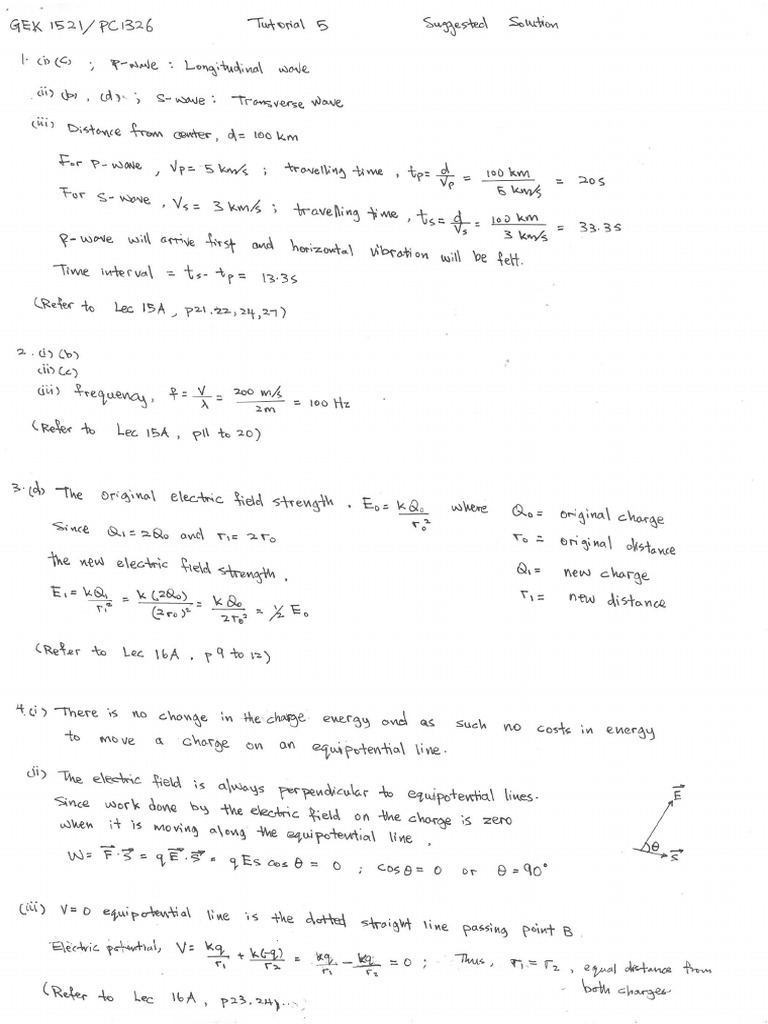 GEK 1521/PC1326 Tutorial 5 Suggested Solution
1. (i) (c) ; P-wave : Longitudinal wave
(ii) (b), (d) ; S-wave : Transverse wave
(iii) Distance from center, d = 100 km
For P-wave, Vp = 5 km/s ; travelling time, tp = d/Vp = 100 km / 5 km/s = 20s
For S-wave, Vs = 3 km/s ; travelling time, ts = d/Vs = 100 km / 3 km/s = 33.3s
P-wave will arrive first and horizontal vibration will be felt.
Time interval = ts - tp = 13.3s
(Refer to Lec 15A, p21.22, 24, 27)
2. (i) (b)
(ii) (c)
(iii) frequency, f = V/λ = 200 m/s / 2m = 100 Hz
(Refer to Lec 15A, p11 to 20)
3. (d) The original electric field strength, E₀ = kQ₀/r₀² where Q₀ = original charge
r₀ = original distance
Since Q₁ = 2Q₀ and r₁ = 2r₀
Q₁ = new charge
the new electric field strength,
r₁ = new distance
E₁ = kQ₁/r₁² = k(2Q₀)/(2r₀)² = kQ₀/2r₀² = ½ E₀
(Refer to Lec 16A, p9 to 12)
4. (i) There is no change in the charge energy and as such no costs in energy
to move a charge on an equipotential line.
(ii) The electric field is always perpendicular to equipotential lines.
Since work done by the electric field on the charge is zero
when it is moving along the equipotential line,
W = F⃗·S⃗ = qE⃗·S⃗ = qEs cos θ = 0 ; cos θ = 0 or θ = 90°
E⃗
θ
S⃗
(iii) V=0 equipotential line is the dotted straight line passing point B.
Electric potential, V = kq/r₁ + k(-q)/r₂ = kq/r₁ - kq/r₂ = 0 ; Thus, r₁ = r₂, equal distance from
both charges.
(Refer to Lec 16A, p23, 24)